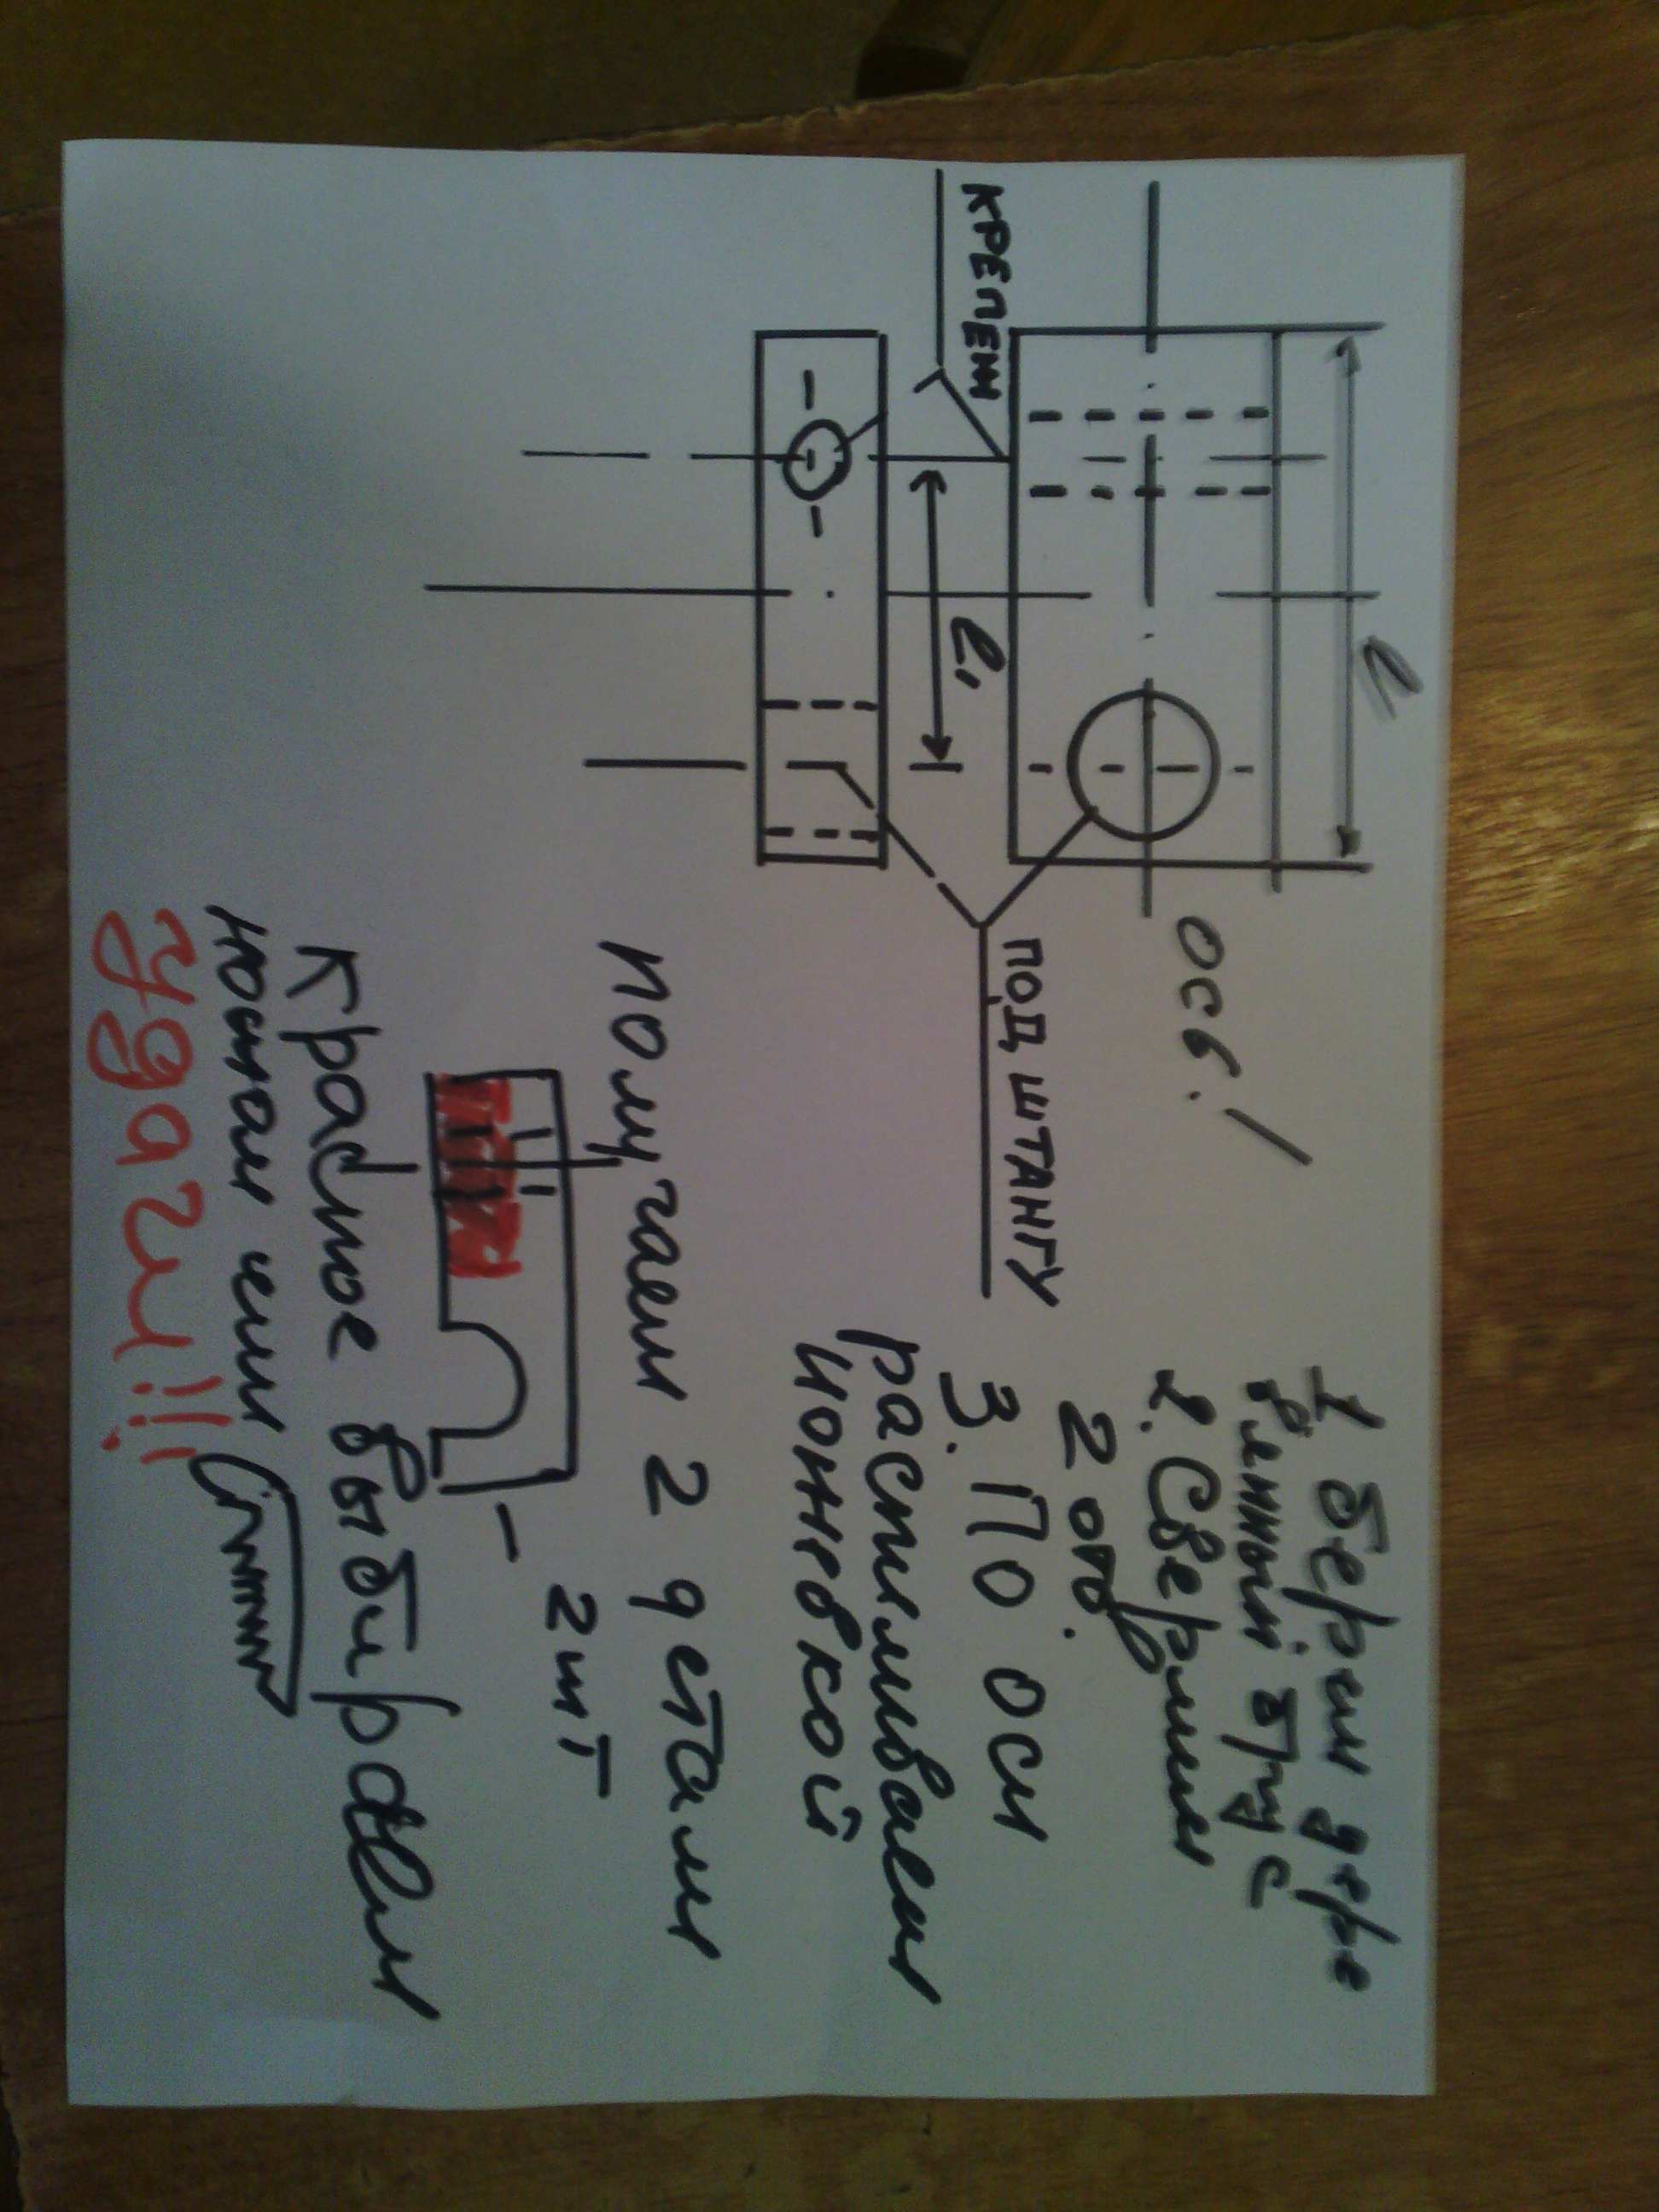 l
ось!
КРЕПЕЖ
l₁
ПОД ШТАНГУ
1 берем дере
вянный брус
2. Сверлим
2 отв.
3. ПО оси
распиливаем
ножовкой
Получаем 2 детали
2шт
Красное выбираем
ножом или
удачи!!!